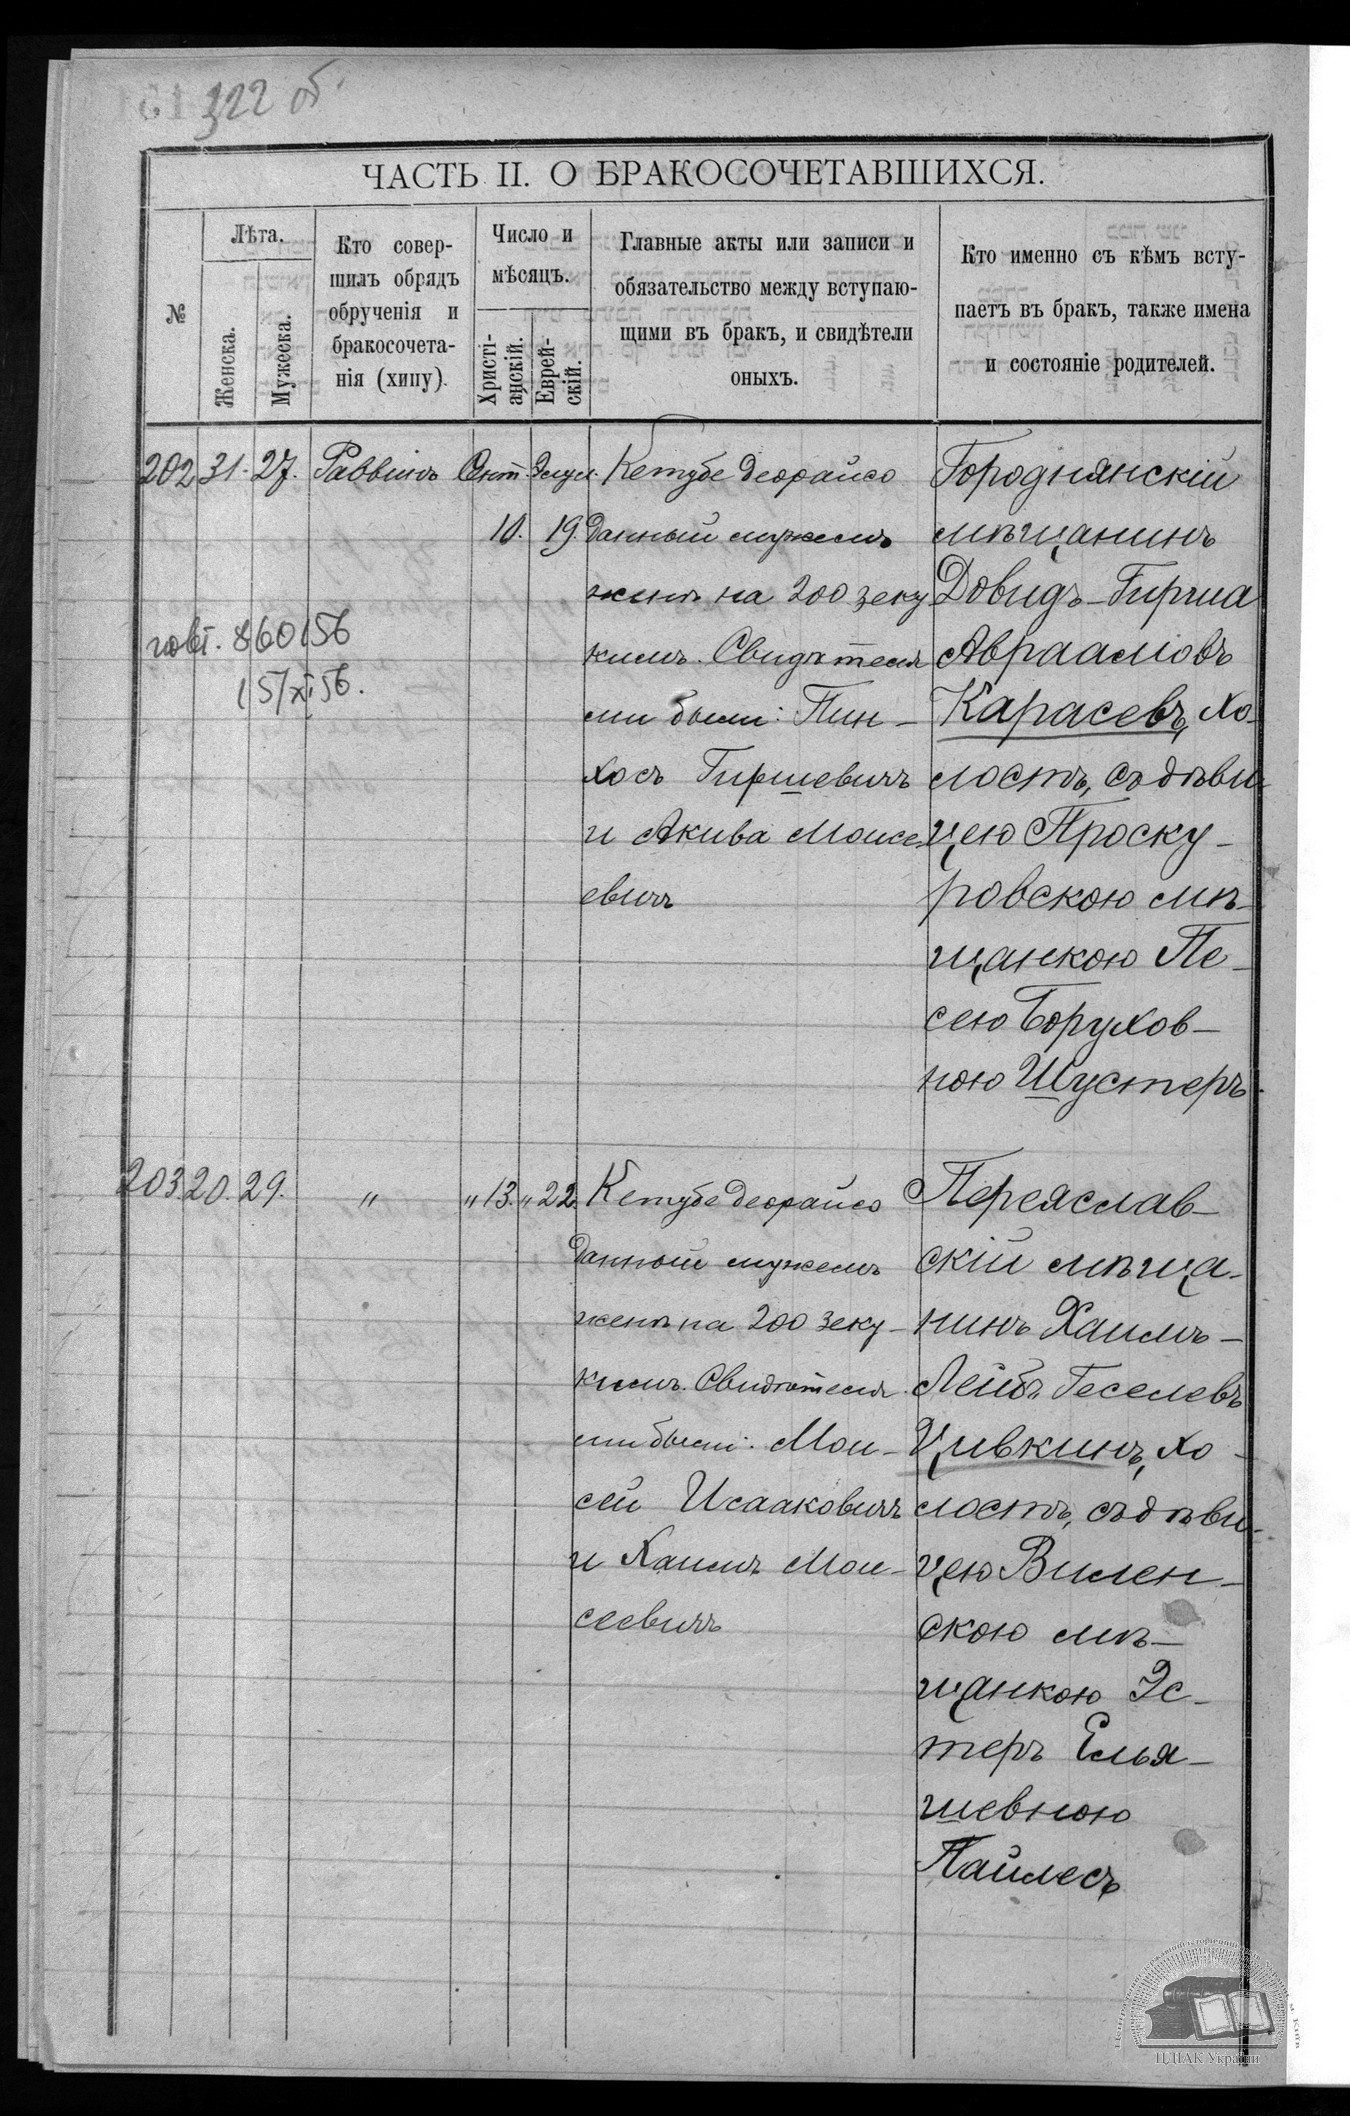 322 об.
ЧАСТЬ II. О БРАКОСОЧЕТАВШИХСЯ.
№
Лѣта.
Женска.
Мужеска.
Кто совер-
шилъ обрядъ
обрученія и
бракосочета-
нія (хипу).
Число и
мѣсяцъ.
Христі-
анскій.
Еврей-
скій.
Главные акты или записи и
обязательство между вступаю-
щими въ бракъ, и свидѣтели
оныхъ.
Кто именно съ кѣмъ всту-
паетъ въ бракъ, также имена
и состояніе родителей.
202 31. 27. Раввинъ
10. 19.
860/56
15/XI 56.
Кетубе деорайсо
данный мужемъ
женѣ на 200 зеку
кимъ. Свидѣтеля
ми были: Пин-
хосъ Гиршевичъ
и Акива Моисе-
евичъ
Городнянскій
мѣщанинъ
Довидъ-Гирша
Авраамовъ
Карасевъ, хо-
лостъ, съ дѣви-
цею Проску-
ровскою мѣ-
щанкою Пе-
сею Борухов-
ною Шустеръ.
203 20. 29. " " 13. " 22.
Кетубе деорайсо
данный мужемъ
женѣ на 200 зеку-
кимъ. Свидѣтеля
ми были: Мои-
сей Исааковичъ
и Хаимъ Мои-
сеевичъ
Переяслав-
скій мѣща-
нинъ Хаимъ-
Лейбъ Геселевъ
Цивкинъ, хо-
лостъ, съ дѣви-
цею Вилен-
скою мѣ-
щанкою Эс-
теръ Елья-
шевною
Пайлесъ
ЦДІАК України